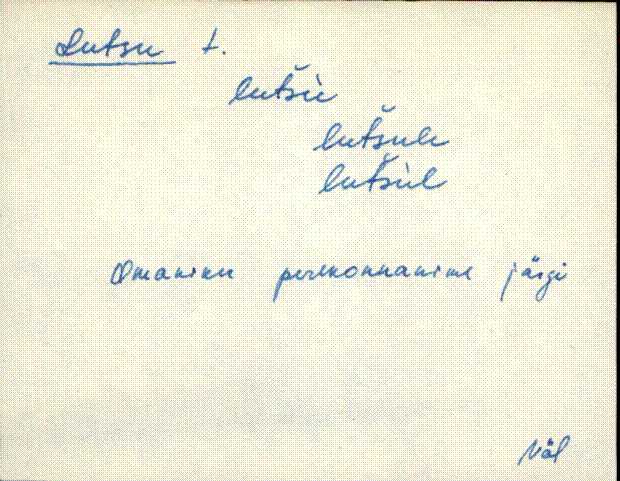 Lutsu t.
lutšu
lutšule
lutšul
Omaniku perekonnanime järgi
Väl